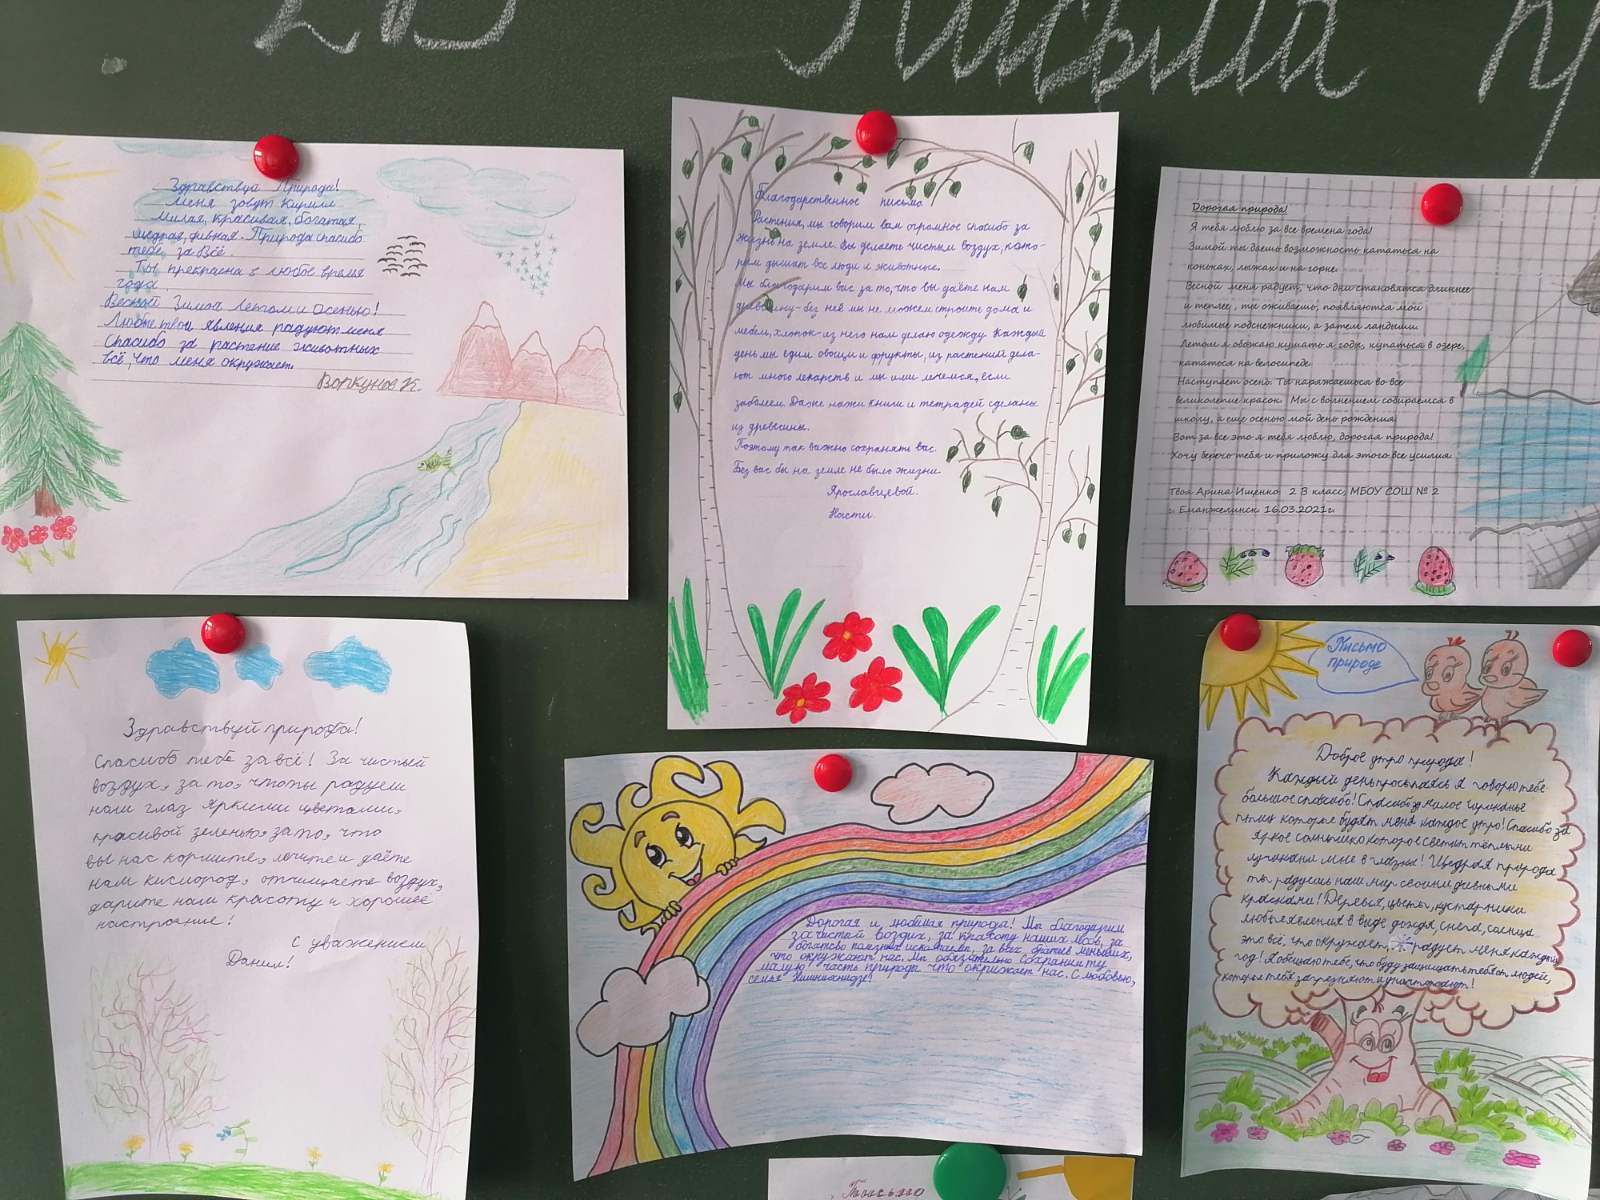 2В Письма
Здравствуй Природа!
Меня зовут Кирилл
Милая, красивая, богатая,
щедрая, дивная. Природа спасибо
тебе, за Всё.
Ты прекрасна в любое время
года.
Весной Зимой Летом и Осенью!
Любые твои явления радуют меня
Спасибо за растение животных
всё, что меня окружает.
Воркунов К.
Благодарственное письмо.
Растения, мы говорим вам огромное спасибо за
жизнь на земле. Вы делаете чистым воздух, кото-
рым дышат все люди и животные.
Мы благодарим вас за то, что вы даёте нам
древесину - без неё мы не можем строить дома и
мебель, хлопок - из него нам делают одежду. Каждый
день мы едим овощи и фрукты, из растений дела-
ют много лекарств и мы ими лечимся, если
заболеем. Даже наши книги и тетрадей сделаны
из древесины.
Поэтому так важно сохранять вас.
Без вас бы на земле не было жизни
Ярославцевой.
Насти.
Дорогая природа!
Я тебя люблю за все времена года!
Зимой ты даешь возможность кататься на
коньках, лыжах и на горке.
Весной меня радует, что дни становятся длиннее
и теплее, ты оживаешь, появляются мои
любимые подснежники, а затем ландыши.
Летом я обожаю кушать ягоды, купаться в озере,
кататься на велосипеде.
Наступает осень. Ты наряжаешься во все
великолепие красок. Мы с волнением собираемся в
школу, а еще осенью мой день рождения!
Вот за все это я тебя люблю, дорогая природа!
Хочу беречь тебя и приложу для этого все усилия.
Твоя Арина Ищенко 2 В класс, МБОУ СОШ № 2
г. Еманжелинск 16.03.2021г.
Здравствуй природа!
Спасибо тебе за всё! За чистый
воздух, за то, чтоты радуеш
нам глаз яркими цветами,
красивой зеленью, за то, что
вы нас кормите, лечите и даёте
нам кислород, отчищаете воздух,
дарите нам красоту и хорошее
настроение!
С уважением
Данил!
Дорогая и любимая природа! Мы благодарим
за чистый воздух, за красоту наших лесов, за
богатство полезных ископаемых, за всех братьев меньших,
что окружают нас. Мы обязательно сохраним ту
малую часть природы что окружает нас. С любовью,
семья
Письмо
природе
Доброе утро природа!
Каждый день просыпаясь я говорю тебе
большое спасибо! Спасибо за милое чириканье
птиц которые будят меня каждое утро! Спасибо за
яркое солнышко которое светит тёплыми
лучиками мне в глазки! Щедрая природа
ты радуешь наш мир своими дивными
красками! Деревья, цветы, кустарники
любые явления в виде дождя, снега, солнца
это всё, что окружает и радует меня каждый
год! Я обещаю тебе, что буду защищать тебя от людей,
которые тебя загрязняют и уничтожают!
Письмо